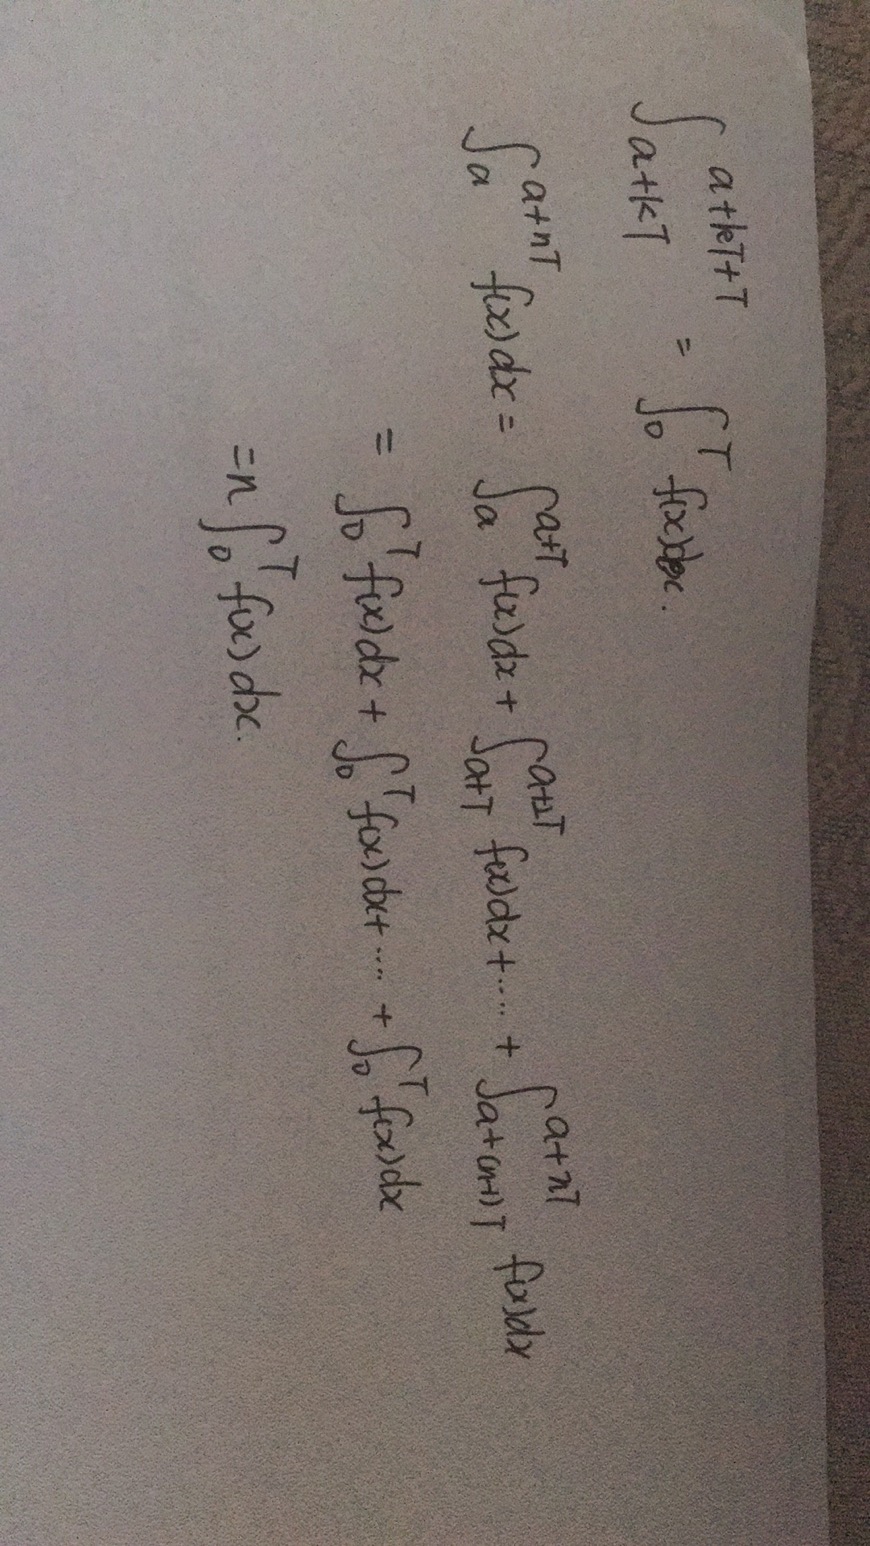 ∫_{a+kT}^{a+kT+T} = ∫_0^T f(x)dx.
∫_a^{a+nT} f(x)dx = ∫_a^{a+T} f(x)dx + ∫_{a+T}^{a+2T} f(x)dx + ..... + ∫_{a+(n-1)T}^{a+nT} f(x)dx
= ∫_0^T f(x)dx + ∫_0^T f(x)dx + .... + ∫_0^T f(x)dx
= n ∫_0^T f(x)dx.